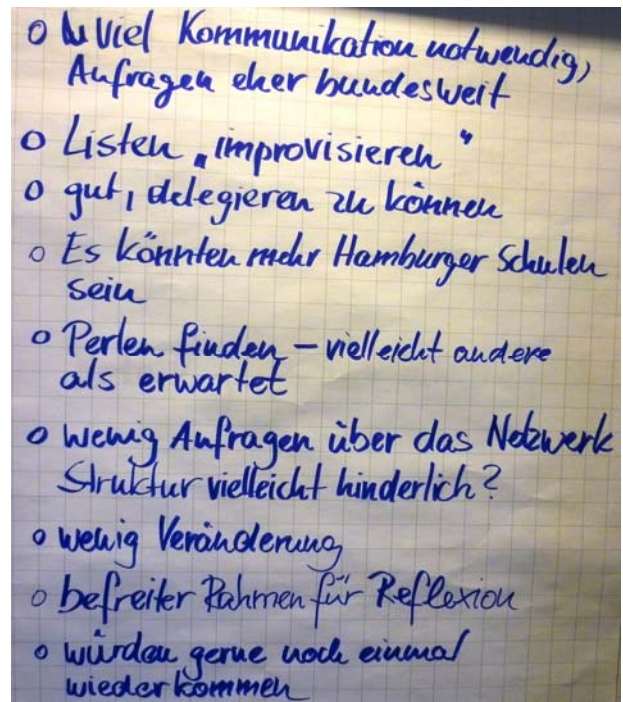 o viel Kommunikation notwendig,
Anfragen eher bundesweit
o Listen „improvisieren“
o gut, delegieren zu können
o Es könnten mehr Hamburger Schulen
sein
o Perlen finden – vielleicht andere
als erwartet
o wenig Anfragen über das Netzwerk
Struktur vielleicht hinderlich?
o wenig Veränderung
o befreiter Rahmen für Reflexion
o würden gerne noch einmal
wiederkommen